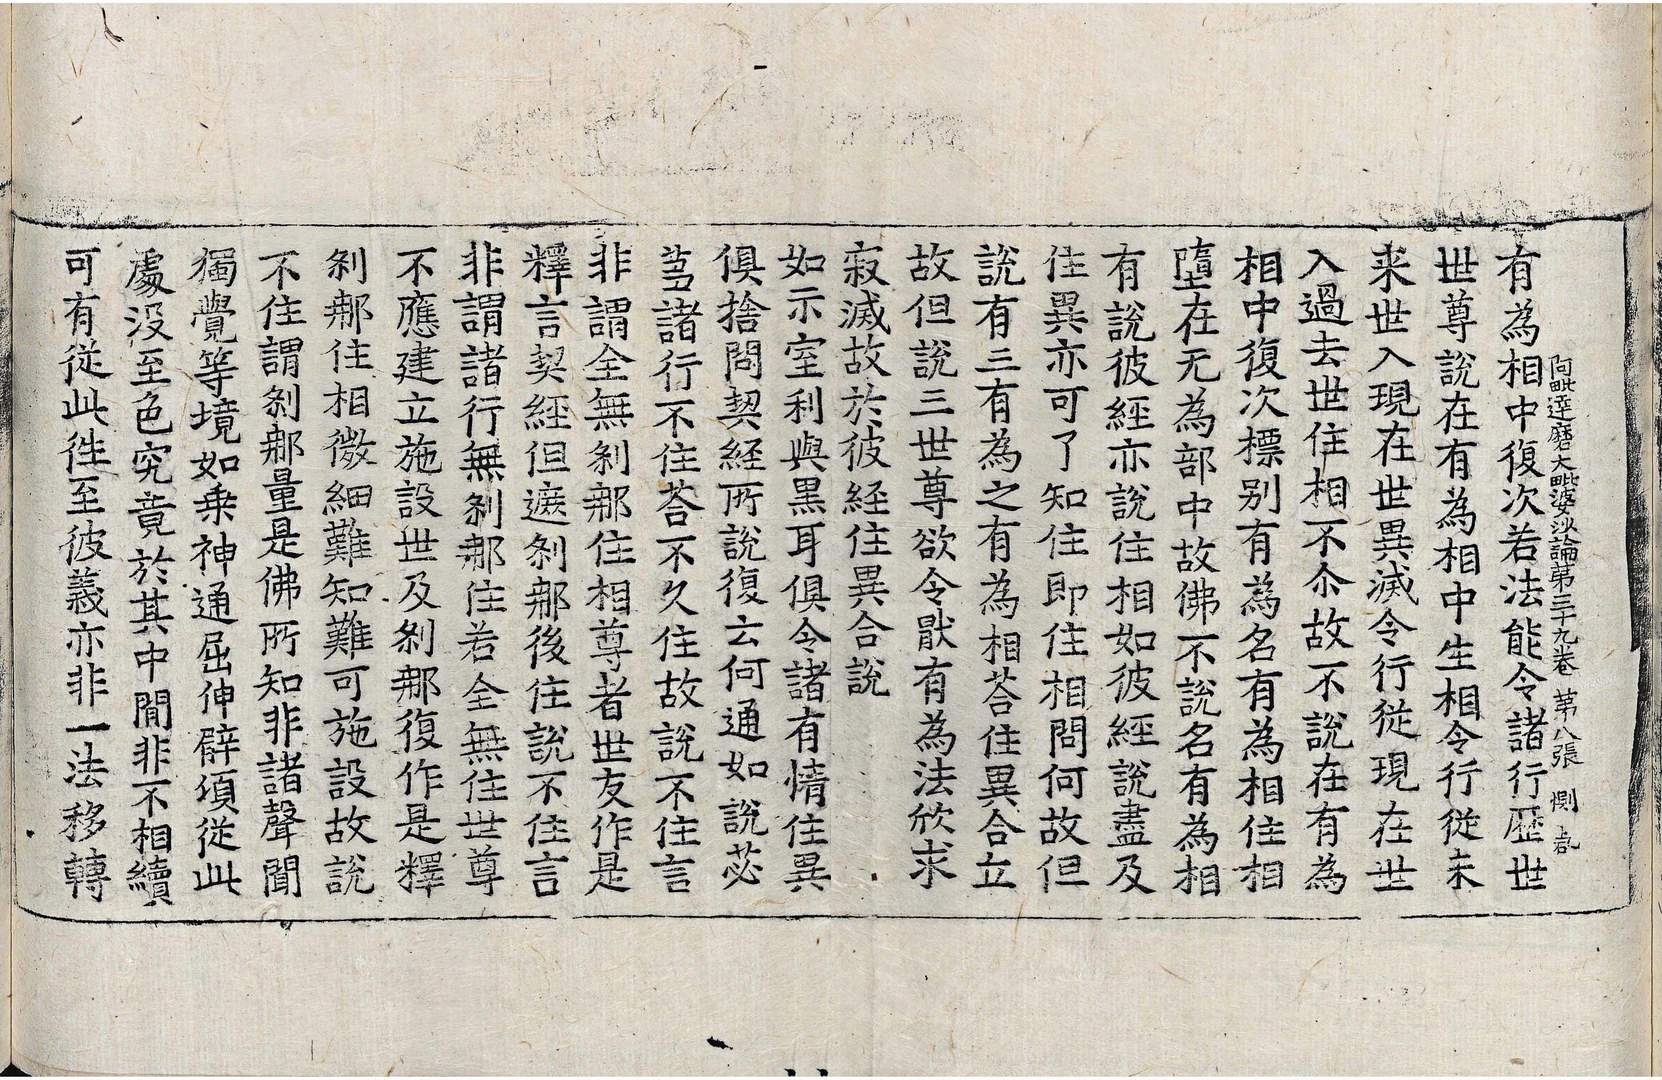 阿毗達磨大毗婆沙論第三十九卷 第八張 惻
有為相中復次若法能令諸行歷世
世尊說在有為相中生相令行從未
来世入現在世異滅令行從現在世
入過去世住相不尒故不說在有為
相中復次標别有為名有為相住相
墮在无為部中故佛不說名有為相
有說彼經亦說住相如彼經說盡及
住異亦可了知住即住相問何故但
說有三有為之有為相荅住異合立
故但說三世尊欲令猒有為法欣求
寂滅故於彼経住異合說
如示室利與黒耳俱令諸有情住異
俱捨問契經所說復云何通如說苾
蒭諸行不住荅不久住故說不住言
非謂全無剎那住相尊者世友作是
釋言契經但遮剎那後住說不住言
非謂諸行無剎那住若全無住世尊
不應建立施設世及剎那復作是釋
剎那住相微細難知難可施設故說
不住謂剎那量是佛所知非諸聲聞
獨覺等境如乗神通屈伸臂項從此
處没至色究竟於其中間非不相續
可有從此徃至彼義亦非一法移轉